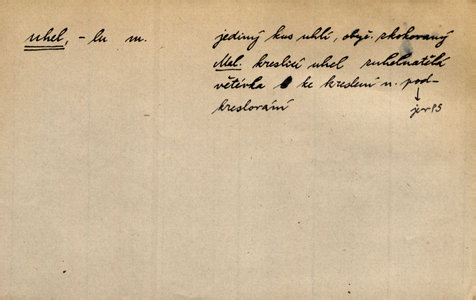 uhel, -lu m. jediný kus uhlí, obyč. skokovaný
Mal. kreslicí uhel zuhelnatělá
větévka ke kreslení n. pod-
kreslování je v PS